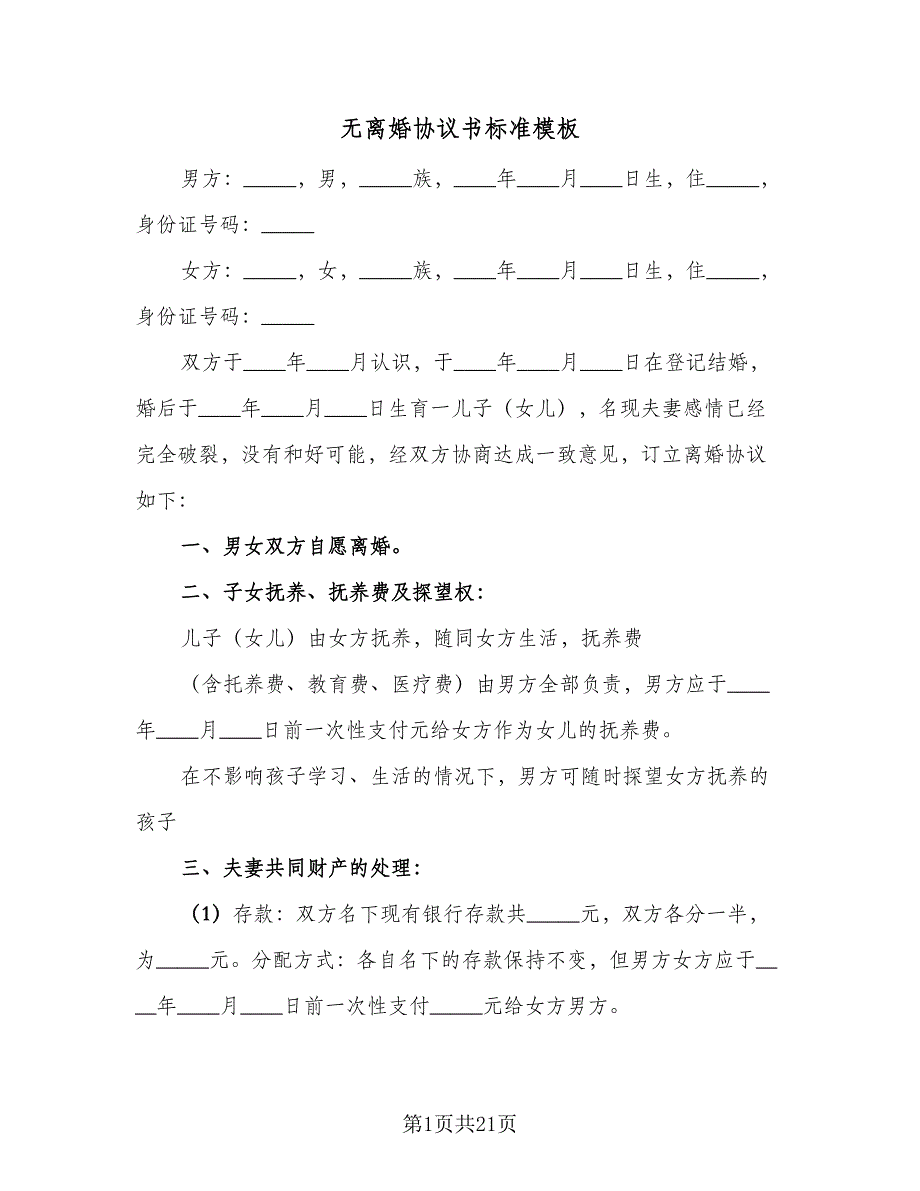 无离婚协议书标准模板
男方：_____，男，_____族，____年____月____日生，住_____，
身份证号码：_____
女方：_____，女，_____族，____年____月____日生，住_____，
身份证号码：_____
双方于____年____月认识，于____年____月____日在登记结婚，
婚后于____年____月____日生育一儿子（女儿），名现夫妻感情已经
完全破裂，没有和好可能，经双方协商达成一致意见，订立离婚协议
如下：
一、男女双方自愿离婚。
二、子女抚养、抚养费及探望权：
儿子（女儿）由女方抚养，随同女方生活，抚养费
（含托养费、教育费、医疗费）由男方全部负责，男方应于____
年____月____日前一次性支付元给女方作为女儿的抚养费。
在不影响孩子学习、生活的情况下，男方可随时探望女方抚养的
孩子
三、夫妻共同财产的处理：
（1）存款：双方名下现有银行存款共_____元，双方各分一半，
为_____元。分配方式：各自名下的存款保持不变，但男方女方应于__
__年____月____日前一次性支付_____元给女方男方。
第1页共21页